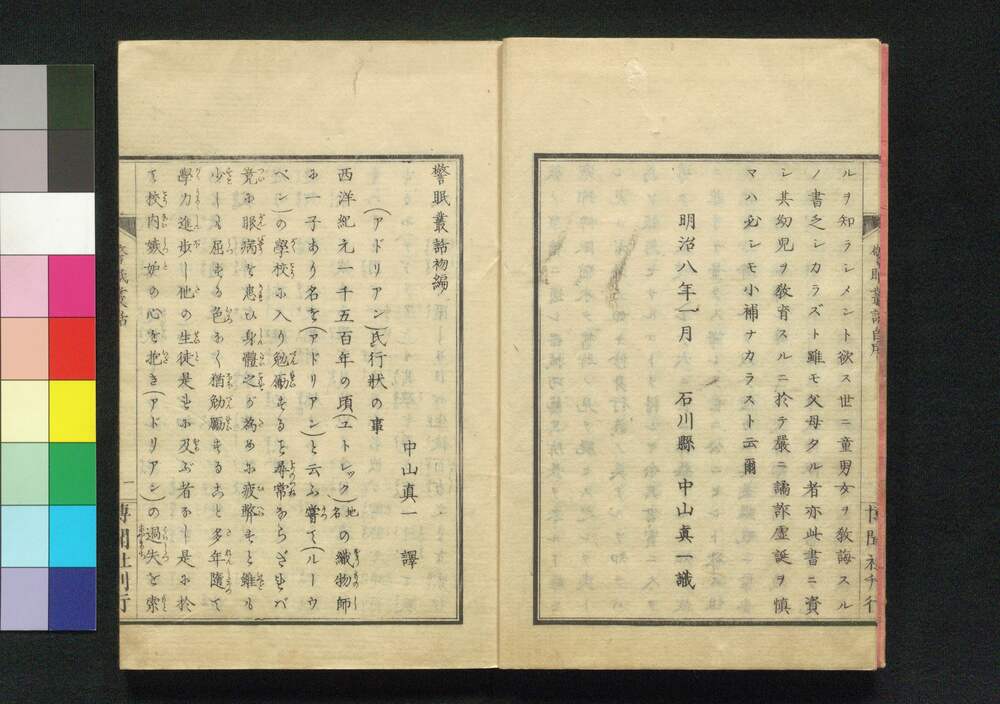 ルヲ知ラシメント欲ス世ニ童男女ヲ教誨スル
ノ書乏シカラズト雖モ父母タル者亦此書ニ資
シ其幼児ヲ教育スルニ於テ嚴ニ譎詐虚誕ヲ慎
マハ必シモ小補ナカラスト云爾
明治八年一月 石川縣 中山真一識
警眠叢話初編
中山真一 譯
(アドリアン)氏行狀の事
西洋紀元一千五百年の頃(ユトレック)地名の織物師
ホ一子あり名を(アドリアン)と云ふ嘗て(ルーウ
ベン)の學校ホ入り勉勵もるを尋常ならざれバ
竟ホ眼病を患ひ身體之が為めホ疲弊もと雖も
少しも屈もる色なく猶勉勵もること多年隨て
學力進歩し他の生徒是れホ及ぶ者なし是ホ於
て校内嫉妒の心を抱き(アドリアン)の過失を索
一
博聞社刊行